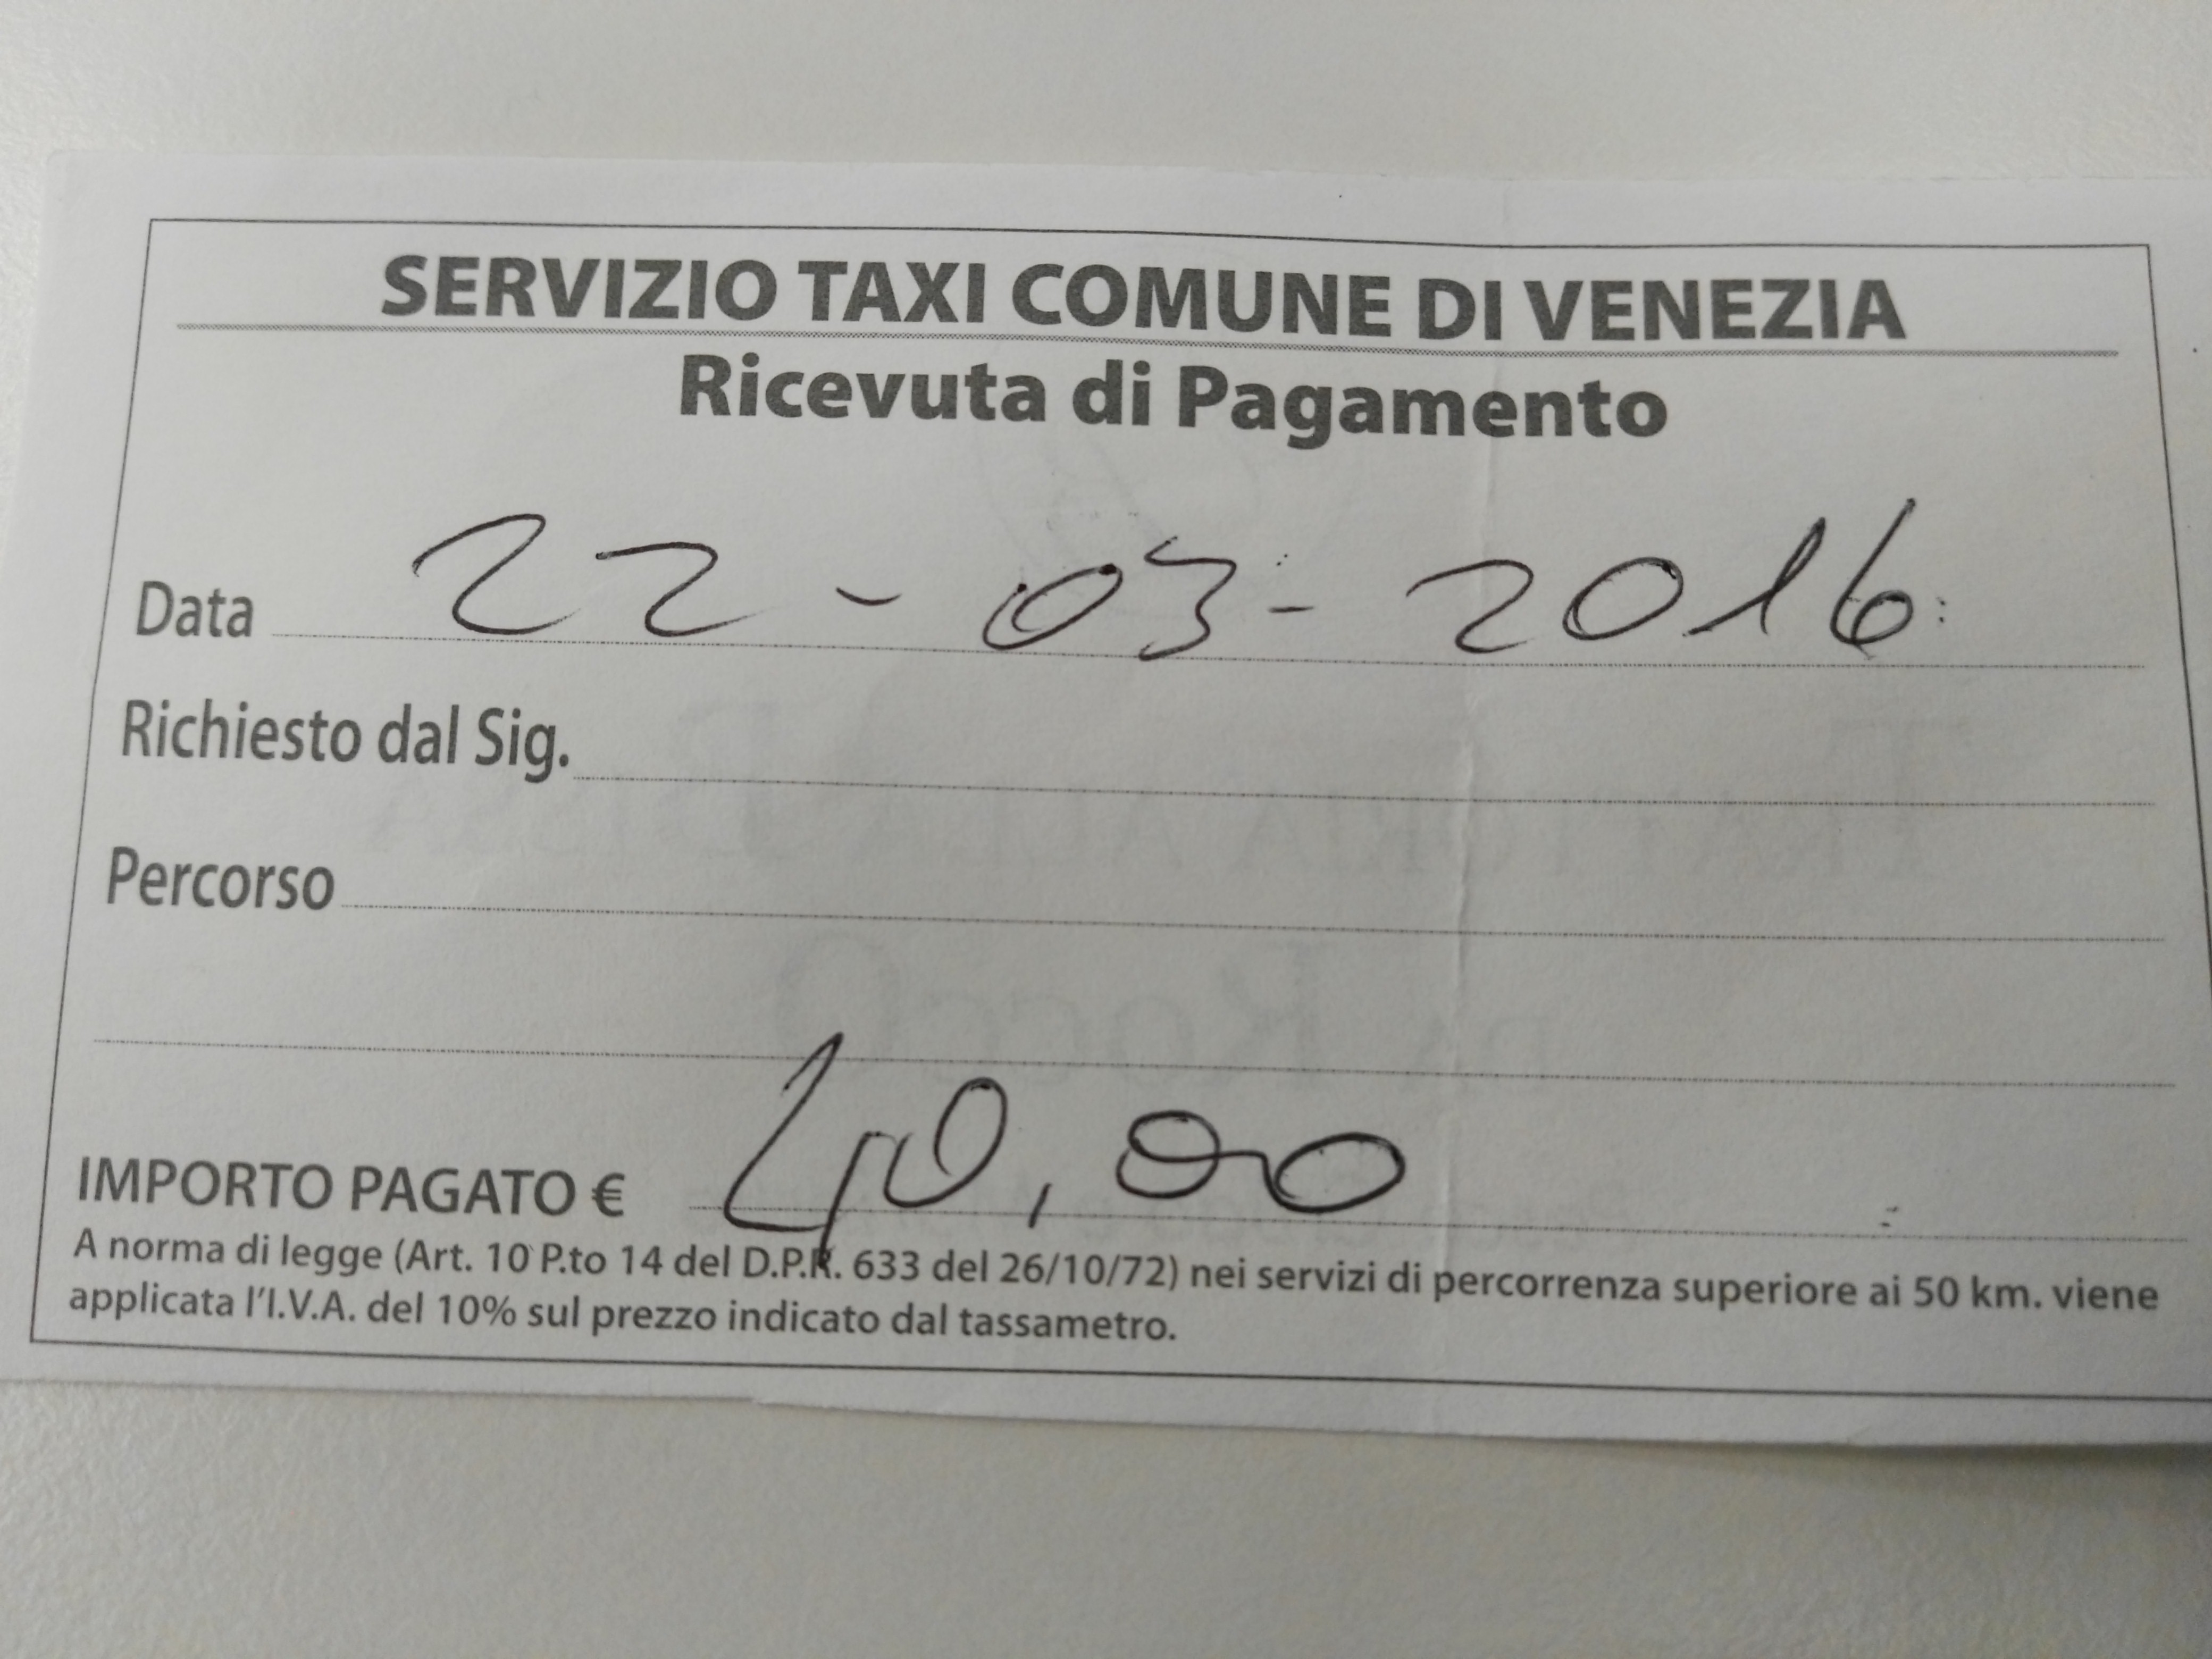 SERVIZIO TAXI COMUNE DI VENEZIA
Ricevuta di Pagamento
Data 22-03-2016
Richiesto dal Sig.
Percorso
IMPORTO PAGATO € 40,00
A norma di legge (Art. 10 P.to 14 del D.P.R. 633 del 26/10/72) nei servizi di percorrenza superiore ai 50 km. viene
applicata l'I.V.A. del 10% sul prezzo indicato dal tassametro.